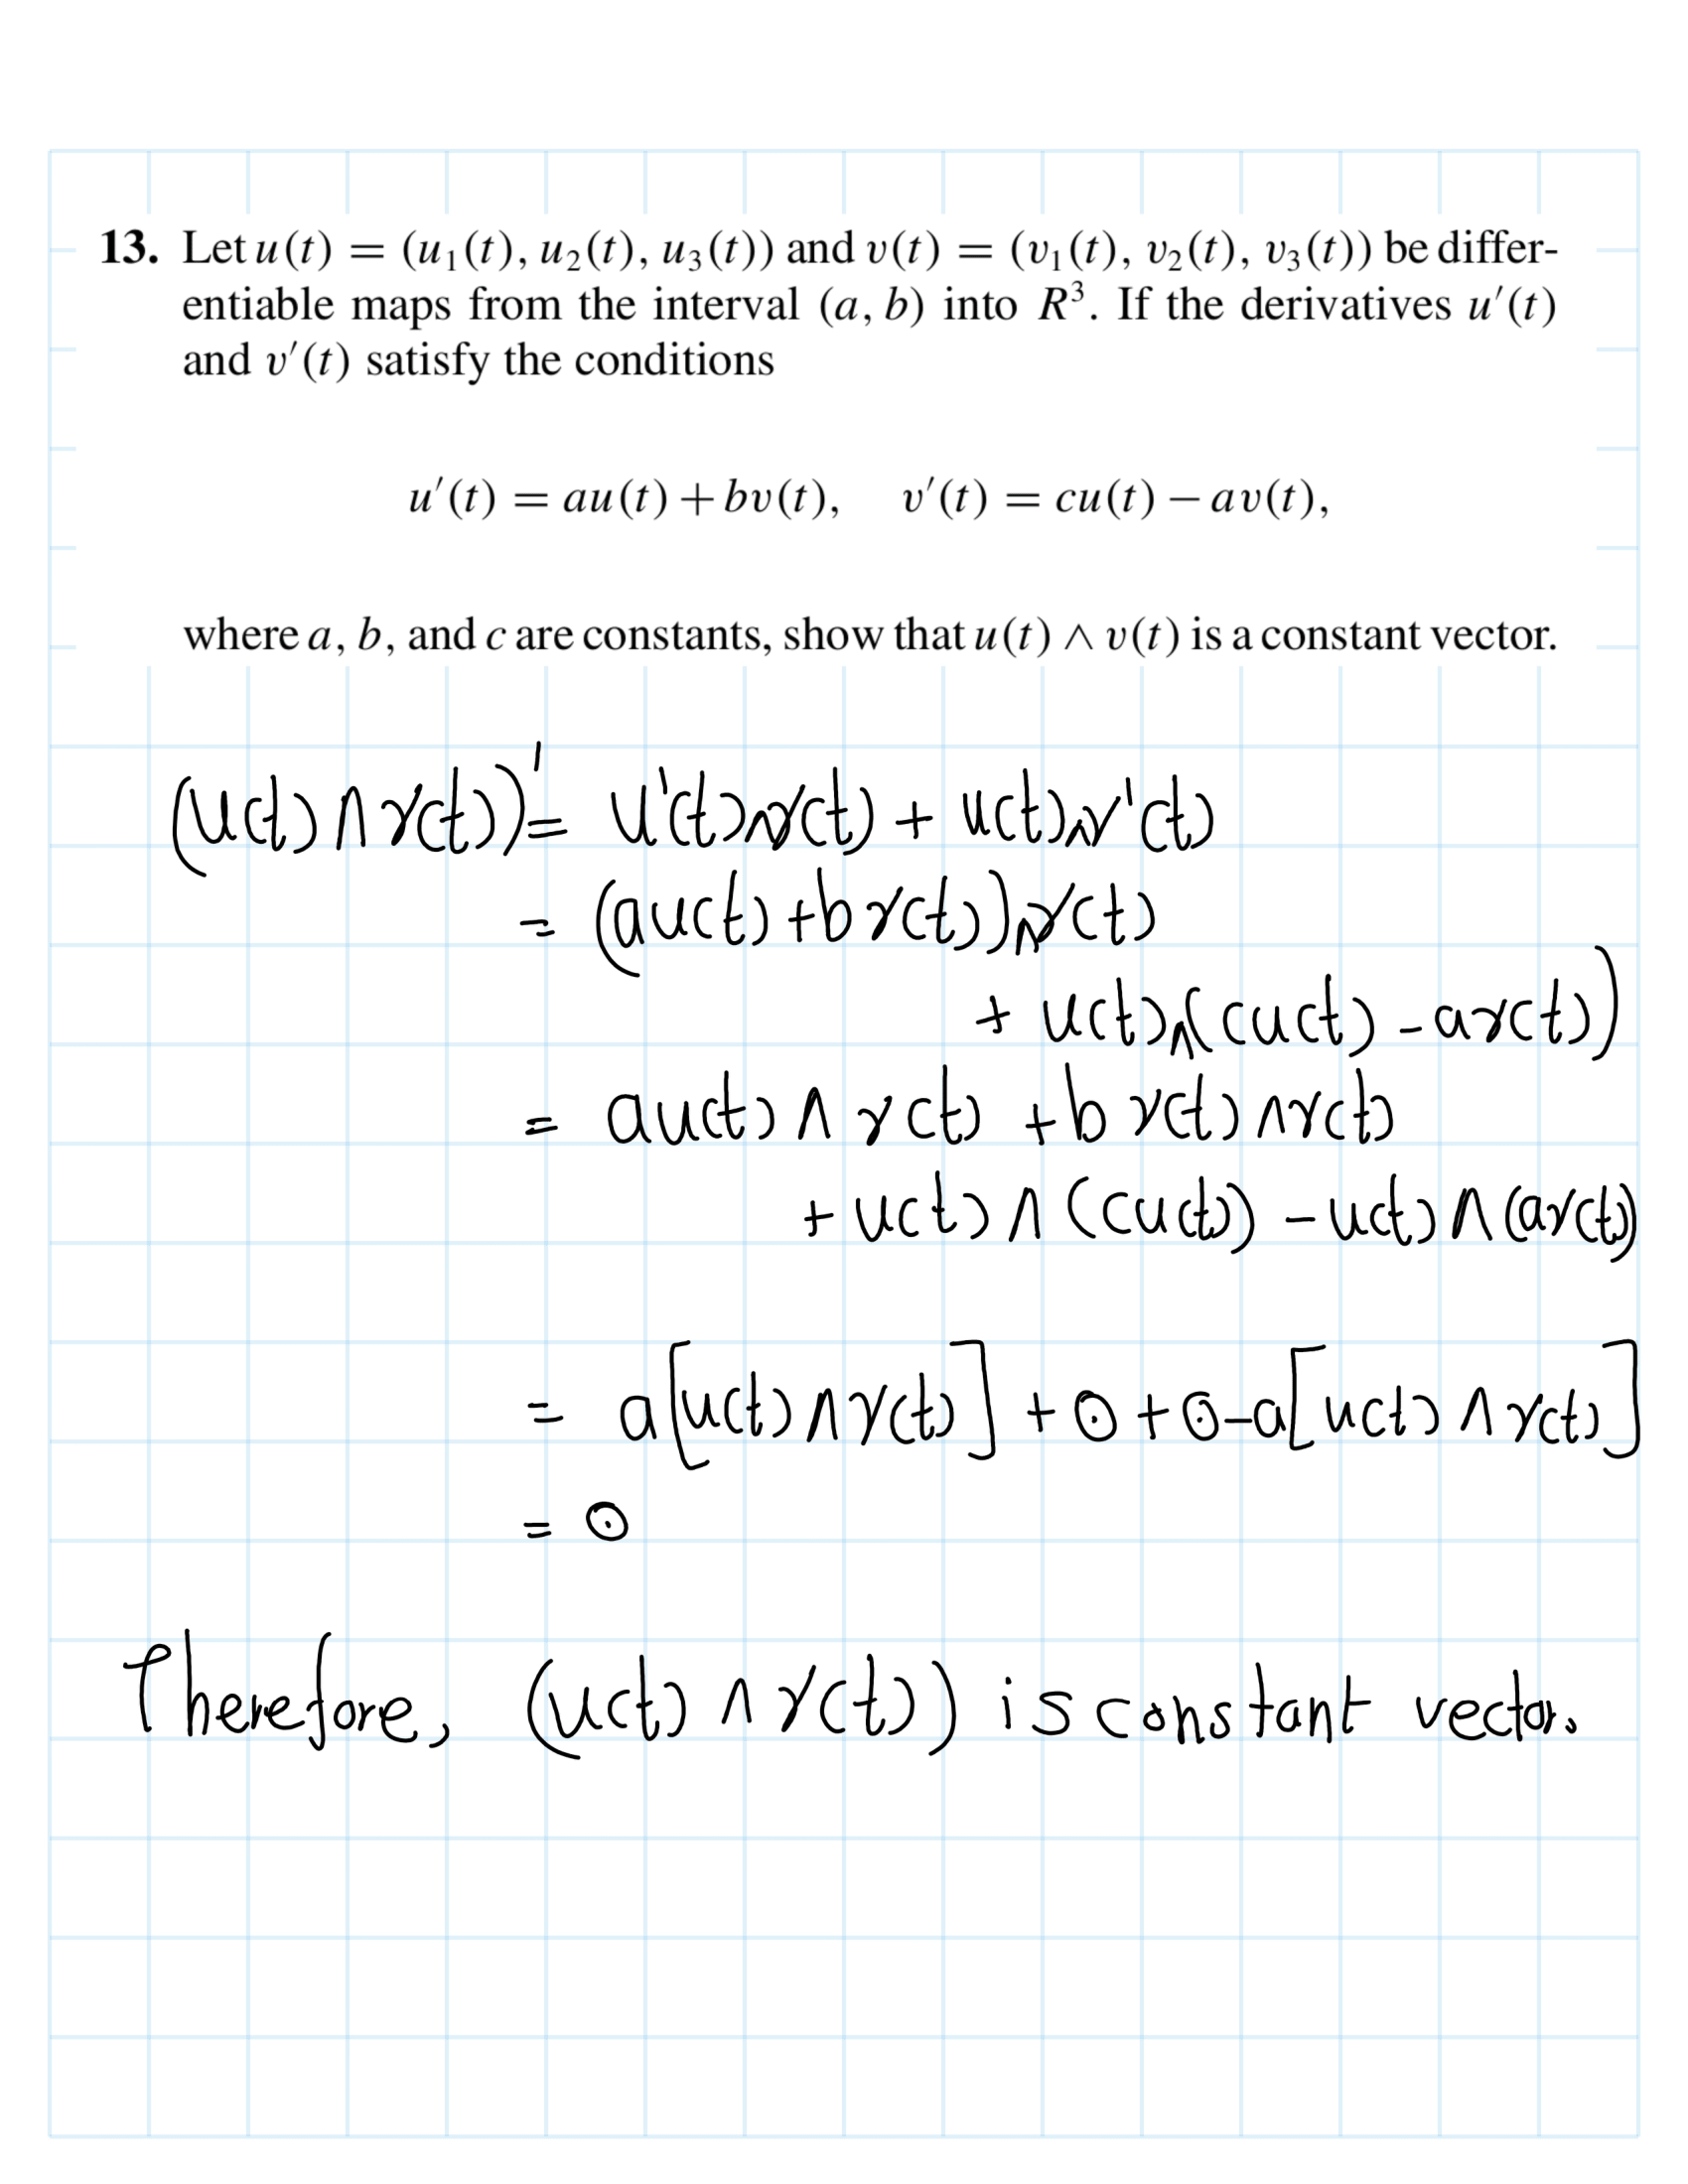 13. Let u(t) = (u₁(t), u₂(t), u₃(t)) and v(t) = (v₁(t), v₂(t), v₃(t)) be differ-
entiable maps from the interval (a, b) into R³. If the derivatives u′(t)
and v′(t) satisfy the conditions
u′(t) = au(t) + bv(t),   v′(t) = cu(t) − av(t),
where a, b, and c are constants, show that u(t) ∧ v(t) is a constant vector.
(u(t) ∧ v(t))′ = u′(t) ∧ v(t) + u(t) ∧ v′(t)
= (au(t) + bv(t)) ∧ v(t)
+ u(t) ∧ (cu(t) − av(t))
= au(t) ∧ v(t) + bv(t) ∧ v(t)
+ u(t) ∧ (cu(t)) − u(t) ∧ (av(t))
= a[u(t) ∧ v(t)] + 0 + 0 − a[u(t) ∧ v(t)]
= 0
Therefore, (u(t) ∧ v(t)) is constant vector.